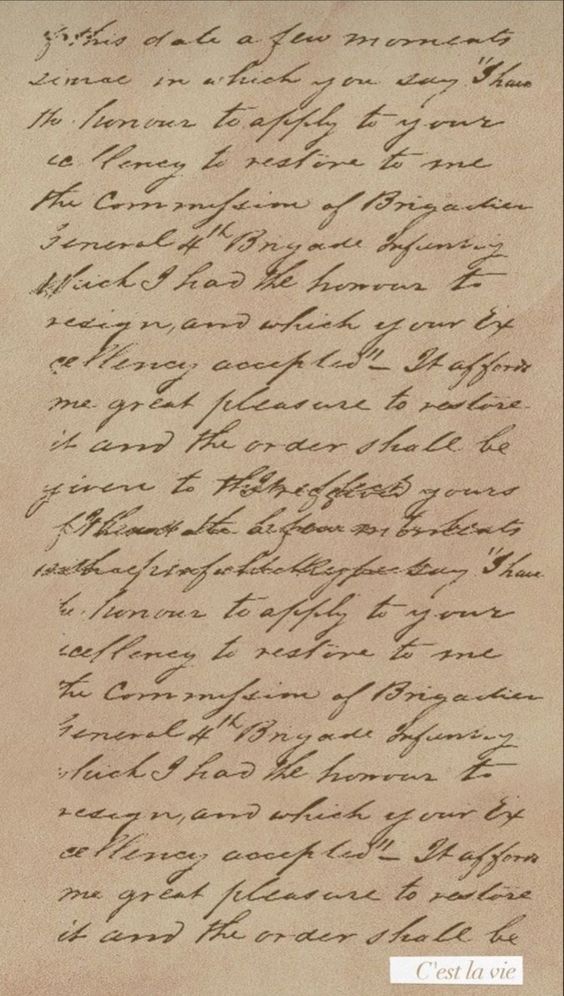 of this date a few moments
since in which you say "I have
the honour to apply to your
cellency to restore to me
the Commission of Brigadier
General 4th Brigade Infantry
Which I had the honour to
resign, and which your Ex
cellency accepted"_ It affords
me great pleasure to restore
it and the order shall be
given to yours
"I have
honour to apply to your
cellency to restore to me
the Commission of Brigadier
General 4th Brigade Infantry
which I had the honour to
resign, and which your Ex
cellency accepted"_ It affords
me great pleasure to restore
it and the order shall be
C'est la vie